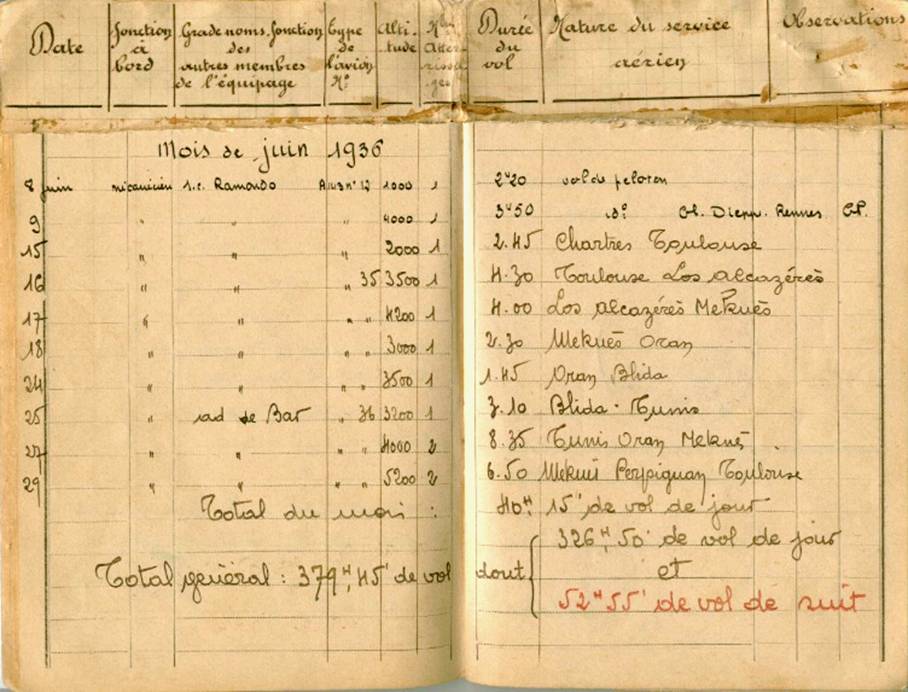 Date Fonction à bord Grade noms fonction des autres membres de l'équipage Type de l'avion N° Altitude Nbre Atterrissages Durée du vol Nature du service aérien Observations
Mois de juin 1936
8 juin mécanicien s.c. Ramondo N° 12 1000 1 2h20 vol de peloton
9 " " " 4000 1 3h50 d° Ch. Diepp. Rennes Ch.
15 " " " 2000 1 2.45 Chartres Toulouse
16 " " " 35 3500 1 4.30 Toulouse Los alcazérès
17 " " " " 4200 1 4.00 Los alcazérès Meknès
18 " " " " 3000 1 2.30 Meknès Oran
24 " " " " 3500 1 1.45 Oran Blida
25 " de Bar " 36 3200 1 3.10 Blida - Tunis
27 " " " " 4000 2 8.35 Tunis Oran Meknès
29 " " " " 5200 2 6.50 Meknès Perpignan Toulouse
Total du mois : 40H 15' de vol de jour
Total général : 379H,45' de vol dont { 326H,50' de vol de jour
et
52H 55' de vol de nuit